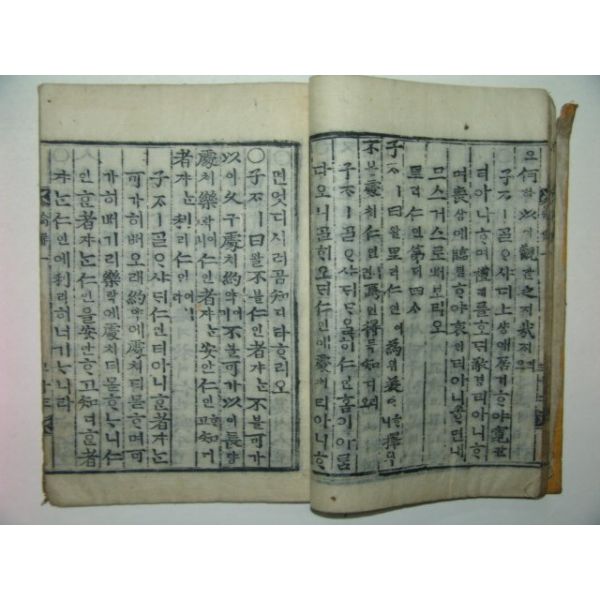 오何하以이觀관之지哉ᄌᆡ리오
○子ᄌᆞㅣᄀᆞᆯᄋᆞ샤ᄃᆡ上샹애居거ᄒᆞ야寬관
티아니ᄒᆞ며禮례ᄅᆞᆯ호ᄃᆡ敬경티아니ᄒᆞ
며喪상애臨림ᄒᆞ야哀ᄋᆡ티아니ᄒᆞ면내
므스거스로ᄡᅥ보리오
里리仁인第뎨四ᄉᆞ
子ᄌᆞㅣ曰왈里리仁인이爲위美미ᄒᆞ니擇ᄐᆡᆨ
不블處쳐仁인이면焉언得득知디리오
○子ᄌᆞㅣᄀᆞᆯᄋᆞ샤ᄃᆡᄆᆞᄋᆞᆯ히仁인홈이아ᄅᆞᆷ
다오니ᄀᆞᆯᄒᆡ오ᄃᆡ仁인에處쳐티아니ᄒᆞ
면엇디시러곰知디타ᄒᆞ리오
○子ᄌᆞㅣ曰왈不블仁인者쟈ᄂᆞᆫ不블可가
以이久구處쳐約약이며不블可가以이長댱
處쳐樂락이니仁인者쟈ᄂᆞᆫ安안仁인ᄒᆞ고知디
者쟈ᄂᆞᆫ利리仁인이니라
子ᄌᆞㅣᄀᆞᆯᄋᆞ샤ᄃᆡ仁인티아니ᄒᆞᆫ者쟈ᄂᆞᆫ
可가히ᄡᅥ오래約약애處쳐티몯ᄒᆞ며可
가히ᄡᅥ기리樂락애處쳐티몯ᄒᆞᄂᆞ니仁
인ᄒᆞᆫ者쟈ᄂᆞᆫ仁인을安안ᄒᆞ고知디ᄒᆞᆫ者
쟈ᄂᆞᆫ仁인에利리히너기ᄂᆞ니라